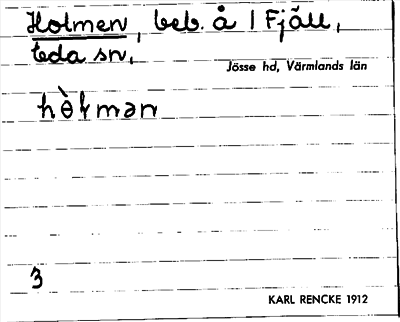 Holmen, beb. å 1 Fjäll,
Eda sn,
Jösse hd, Värmlands län
hòḷmən
3
KARL RENCKE 1912